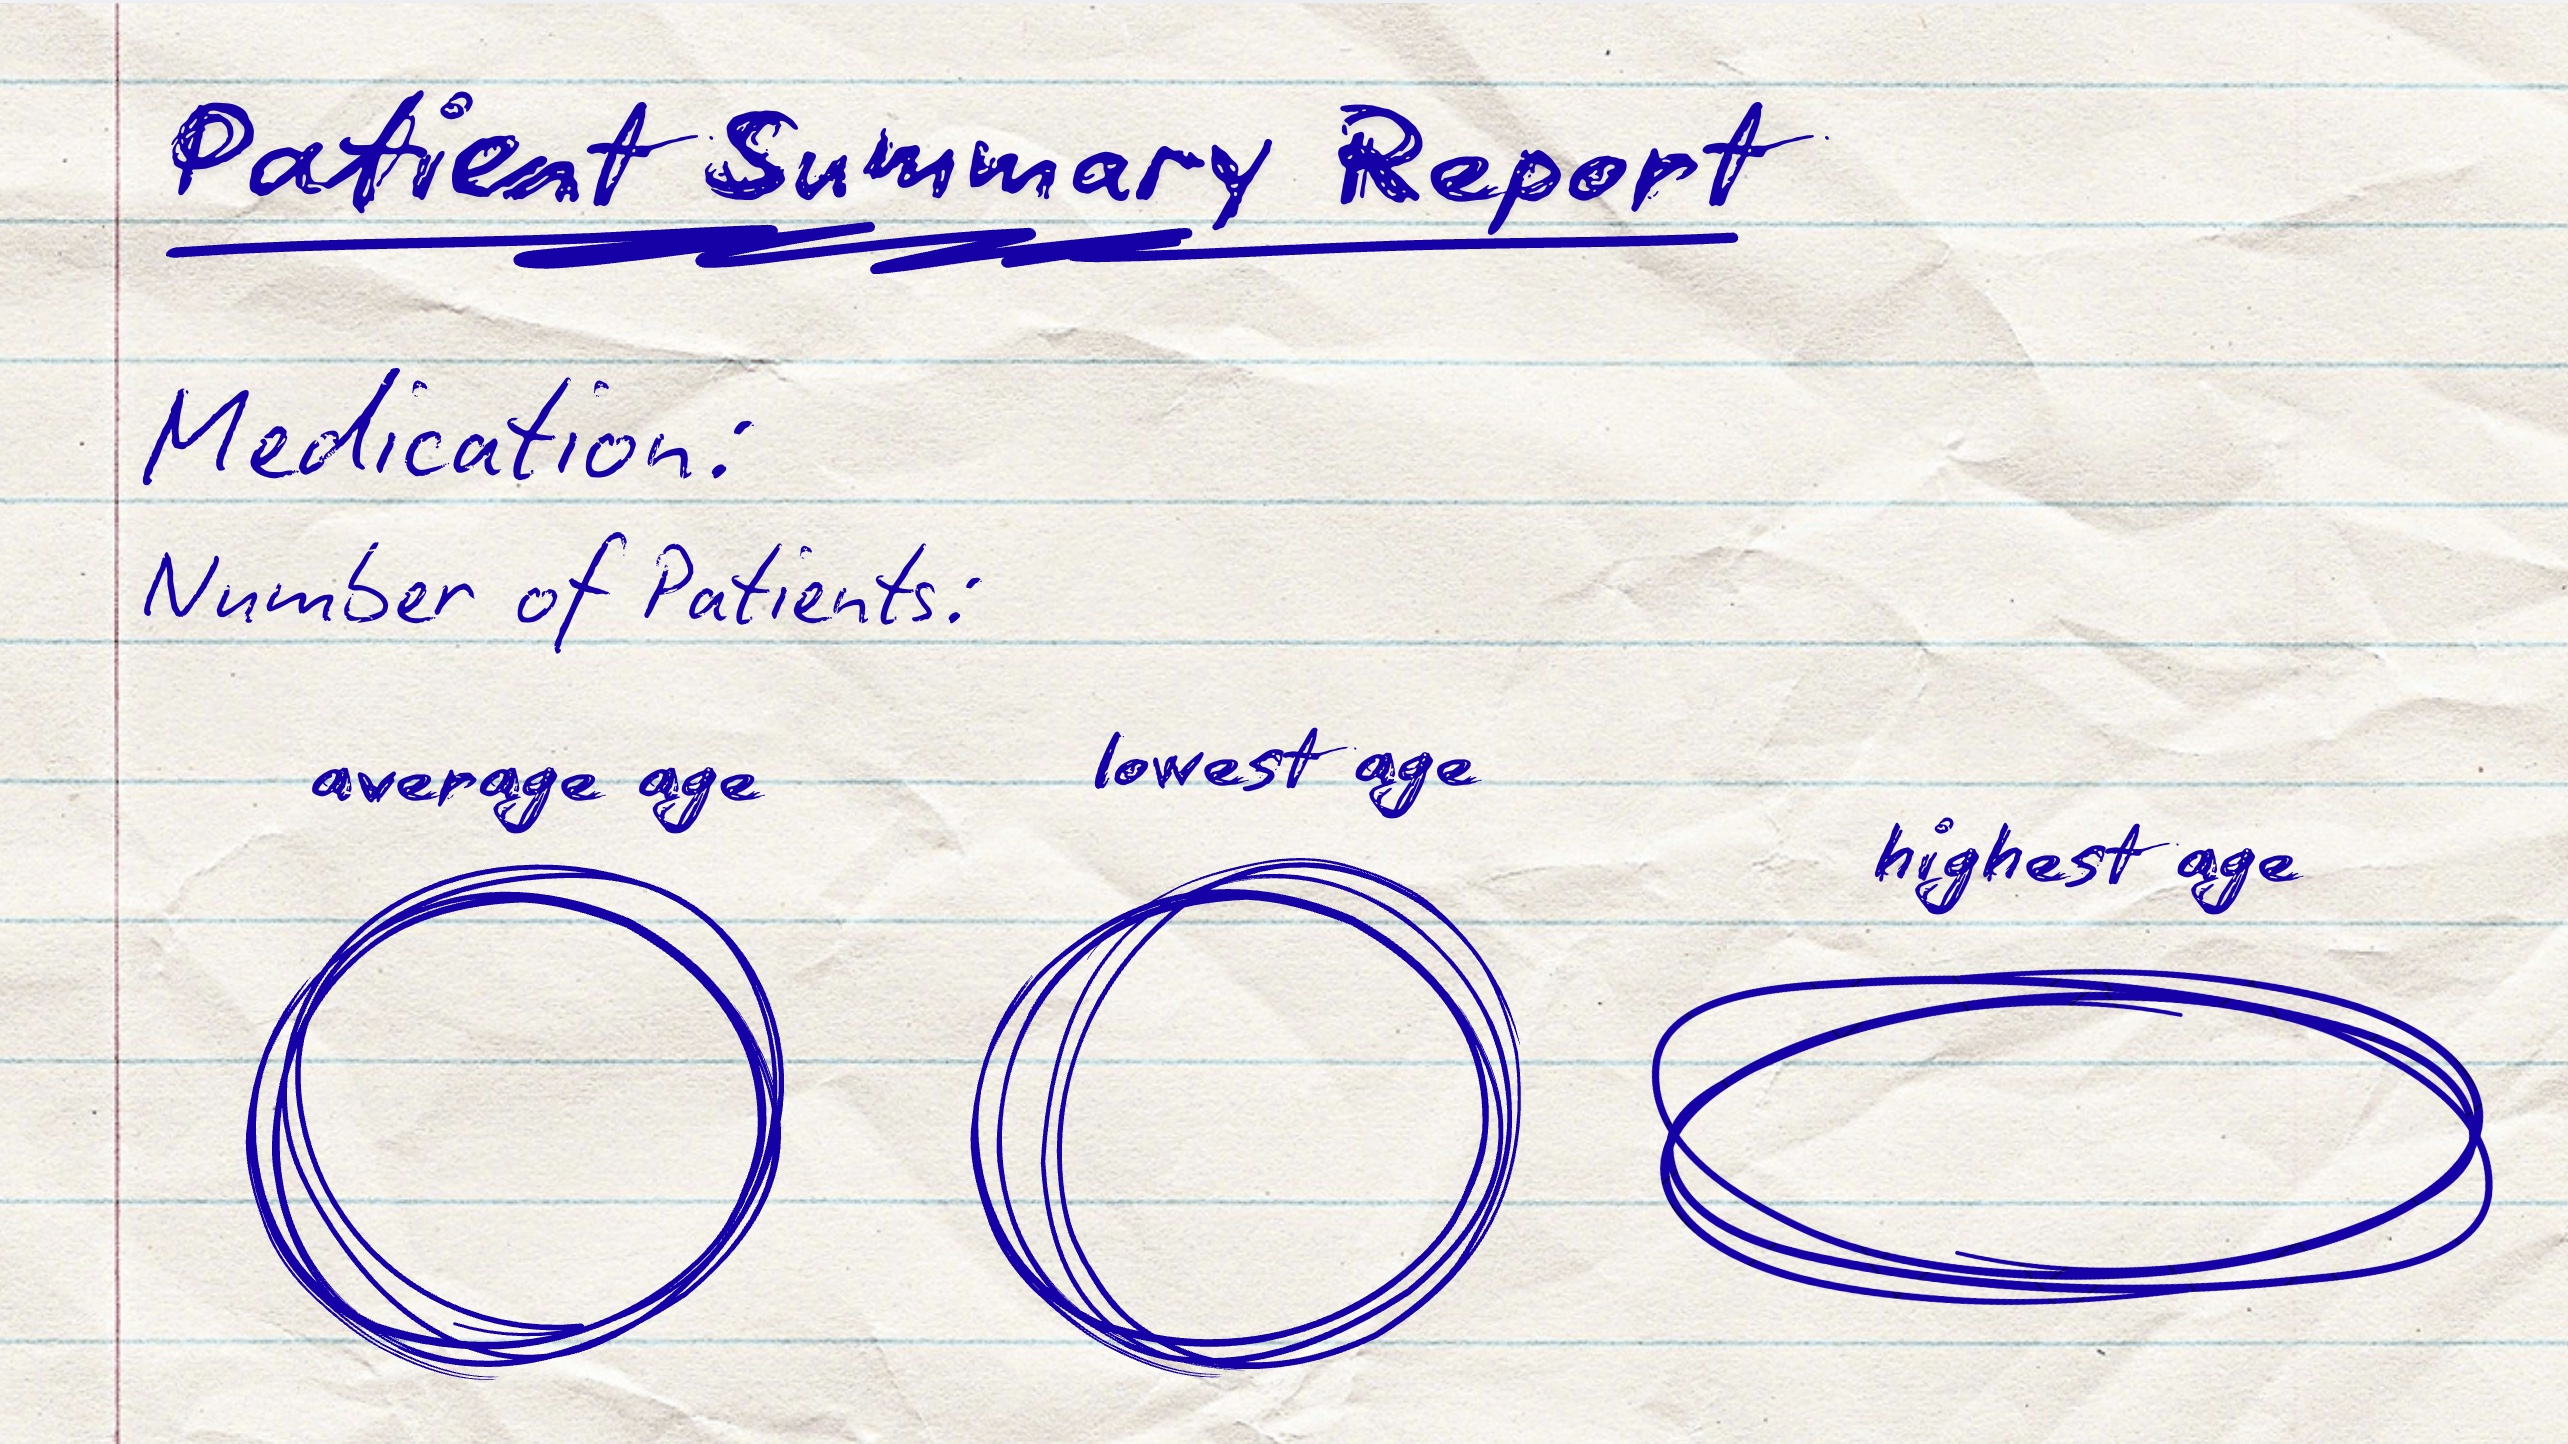 Patient Summary Report
Medication:
Number of Patients:
average age
lowest age
highest age